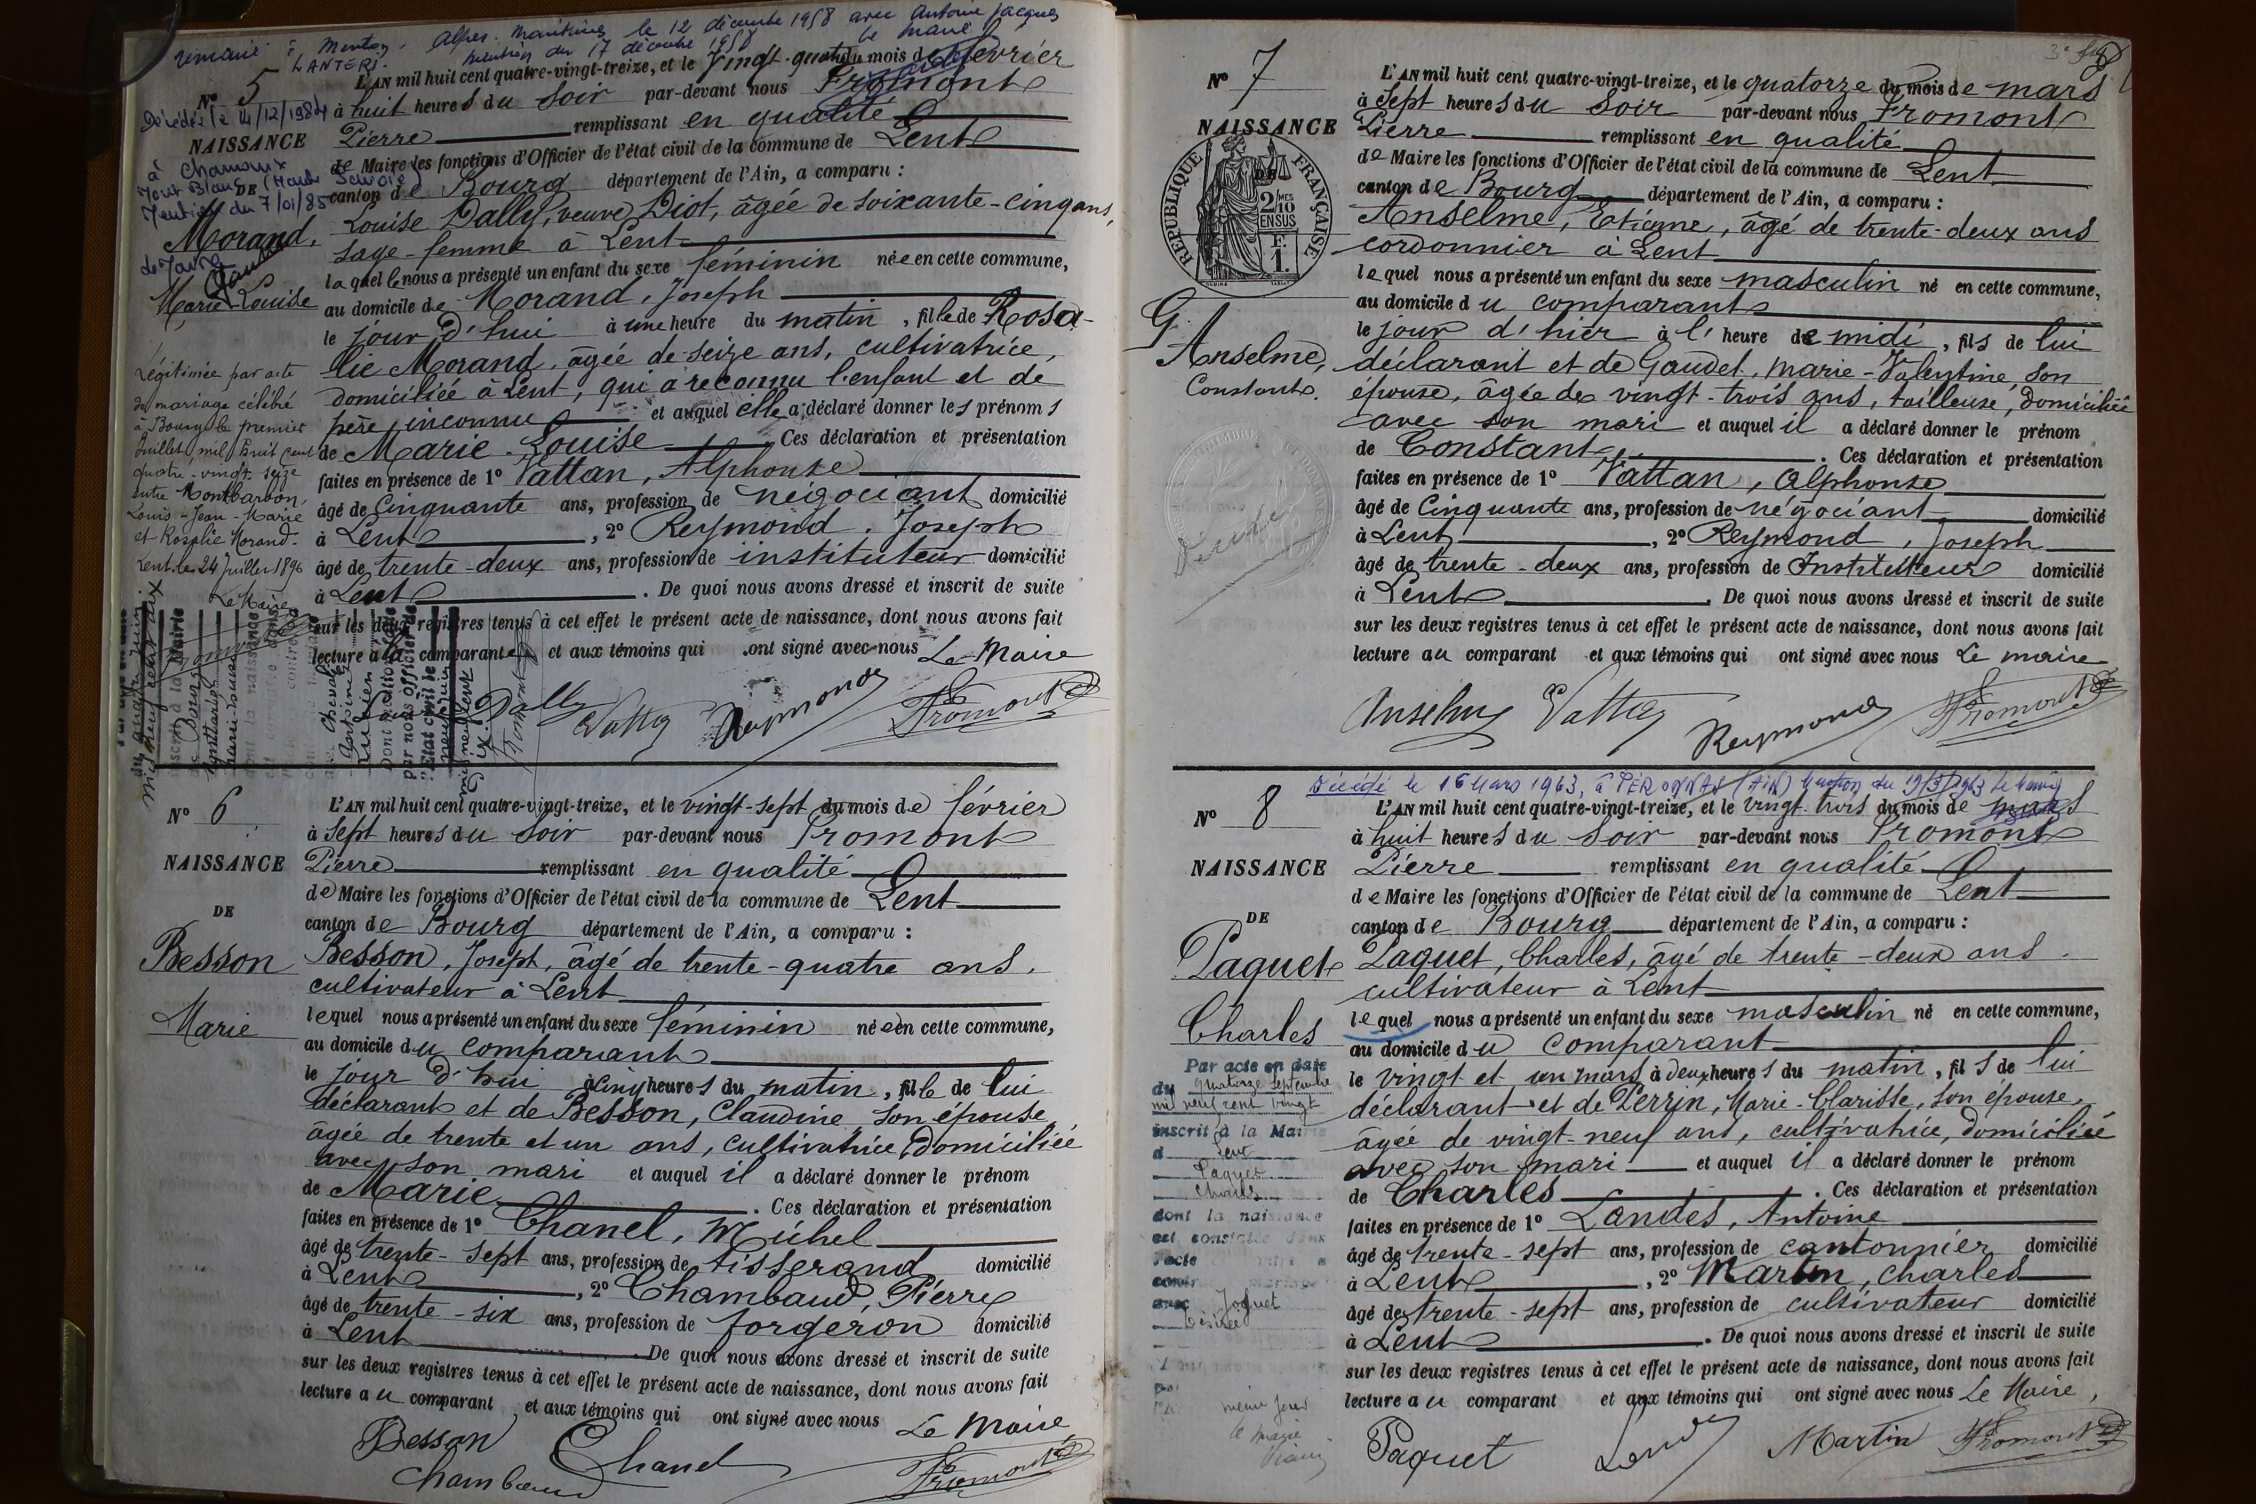 remarié à Menton, Alpes Maritimes le 12 décembre 1958 avec Antoine Jacques
LANTERI. Mention du 17 décembre 1958 le Maire
N° 5
Décédée le 14/12/1984
à Chamonix
Mont Blanc (Haute Savoie)
Mention du 7/01/85
NAISSANCE
DE
Morand,
Marie-Louise
Légitimée par acte
de mariage célébré
à Bourg le premier
Juillet mil huit cent
quatre-vingt-seize
entre Montbarbon,
Louis-Jean-Marie
et Rosalie Morand.
Lent le 24 Juillet 1896
Le Maire
L'AN mil huit cent quatre-vingt-treize, et le Vingt-quatre du mois de février
à huit heures du soir par-devant nous Fromont
Pierre remplissant en qualité
de Maire les fonctions d'Officier de l'état civil de la commune de Lent
canton de Bourg département de l'Ain, a comparu :
Louise Dally, veuve Diot, âgée de soixante-cinq ans,
sage-femme à Lent
laquelle nous a présenté un enfant du sexe féminin née en cette commune,
au domicile de Morand, Joseph
le jour d'hui à une heure du matin, fille de Rosa-
lie Morand, âgée de seize ans, cultivatrice,
domiciliée à Lent, qui a reconnu l'enfant et de
père inconnu et auquel elle a déclaré donner les prénoms
de Marie-Louise. Ces déclaration et présentation
faites en présence de 1° Vattan, Alphonse
âgé de Cinquante ans, profession de négociant domicilié
à Lent, 2° Reymond, Joseph
âgé de trente-deux ans, profession de instituteur domicilié
à Lent. De quoi nous avons dressé et inscrit de suite
sur les deux registres tenus à cet effet le présent acte de naissance, dont nous avons fait
lecture à la comparante et aux témoins qui ont signé avec nous Le Maire
Dally Vattan Reymond Fromont
N° 6
NAISSANCE
DE
Besson
Marie
L'AN mil huit cent quatre-vingt-treize, et le vingt-sept du mois de février
à sept heures du soir par-devant nous Fromont
Pierre remplissant en qualité
de Maire les fonctions d'Officier de l'état civil de la commune de Lent
canton de Bourg département de l'Ain, a comparu :
Besson, Joseph, âgé de trente-quatre ans,
cultivateur à Lent
lequel nous a présenté un enfant du sexe féminin née en cette commune,
au domicile du comparant
le jour d'hui à cinq heures du matin, fille de lui
déclarant et de Besson, Claudine son épouse
âgée de trente et un ans, cultivatrice, domiciliée
avec son mari et auquel il a déclaré donner le prénom
de Marie. Ces déclaration et présentation
faites en présence de 1° Chanel, Michel
âgé de trente-sept ans, profession de tisserand domicilié
à Lent, 2° Chambaud, Pierre
âgé de trente-six ans, profession de forgeron domicilié
à Lent. De quoi nous avons dressé et inscrit de suite
sur les deux registres tenus à cet effet le présent acte de naissance, dont nous avons fait
lecture au comparant et aux témoins qui ont signé avec nous Le Maire
Besson Chanel Fromont
Chambaud
N° 7
NAISSANCE
DE
REPUBLIQUE FRANÇAISE
2/10 MES
EN SUS
F.
1.
G
Anselme,
Constant.
Décédé
L'AN mil huit cent quatre-vingt-treize, et le quatorze du mois de mars
à sept heures du soir par-devant nous Fromont
Pierre remplissant en qualité
de Maire les fonctions d'Officier de l'état civil de la commune de Lent
canton de Bourg département de l'Ain, a comparu :
Anselme, Etienne, âgé de trente-deux ans
cordonnier à Lent
lequel nous a présenté un enfant du sexe masculin né en cette commune,
au domicile du comparant
le jour d'hier à l'heure de midi, fils de lui
déclarant et de Gaudet, Marie-Valentine, son
épouse, âgée de vingt-trois ans, tailleuse, domiciliée
avec son mari et auquel il a déclaré donner le prénom
de Constant. Ces déclaration et présentation
faites en présence de 1° Vattan, Alphonse
âgé de Cinquante ans, profession de négociant domicilié
à Lent, 2° Reymond, Joseph
âgé de trente-deux ans, profession de Instituteur domicilié
à Lent. De quoi nous avons dressé et inscrit de suite
sur les deux registres tenus à cet effet le présent acte de naissance, dont nous avons fait
lecture au comparant et aux témoins qui ont signé avec nous Le maire
Anselme Vattan Reymond Fromont
Décédé le 16 Mars 1963, à PERONNAS (AIN) Mention du 19/3/1963 Le Maire
N° 8
NAISSANCE
DE
Paquet
Charles
Par acte en date
du quatorze septembre
mil neuf cent vingt
inscrit à la Mairie
d Lent
Paquet
Charles
dont la naissance
est constatée dans
l'acte
avec Joguet
Désirée
même jour
le maire
L'AN mil huit cent quatre-vingt-treize, et le vingt-trois du mois de mars
à huit heures du soir par-devant nous Fromont
Pierre remplissant en qualité
de Maire les fonctions d'Officier de l'état civil de la commune de Lent
canton de Bourg département de l'Ain, a comparu :
Paquet, Charles, âgé de trente-deux ans.
cultivateur à Lent
lequel nous a présenté un enfant du sexe masculin né en cette commune,
au domicile du comparant
le vingt et un mars à deux heures du matin, fils de lui
déclarant et de Perrin, Marie-Clarisse, son épouse,
âgée de vingt-neuf ans, cultivatrice, domiciliée
avec son mari et auquel il a déclaré donner le prénom
de Charles. Ces déclaration et présentation
faites en présence de 1° Landes, Antoine
âgé de trente-sept ans, profession de cantonnier domicilié
à Lent, 2° Martin, Charles
âgé de trente-sept ans, profession de cultivateur domicilié
à Lent. De quoi nous avons dressé et inscrit de suite
sur les deux registres tenus à cet effet le présent acte de naissance, dont nous avons fait
lecture au comparant et aux témoins qui ont signé avec nous Le Maire,
Paquet Martin Fromont